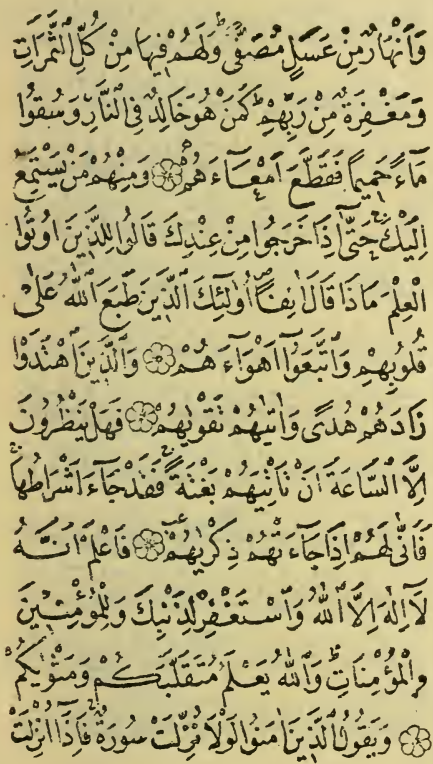 وَاَنْهَارٌ مِنْ عَسَلٍ مُصَفًّى وَلَهُمْ فِيهَا مِنْ كُلِّ الثَّمَرَاتِ
وَمَغْفِرَةٌ مِنْ رَبِّهِمْ كَمَنْ هُوَ خَالِدٌ فِي النَّارِ وَسُقُوا
مَاءً حَمِيمًا فَقَطَّعَ اَمْعَاءَهُمْ ۝ وَمِنْهُمْ مَنْ يَسْتَمِعُ
اِلَيْكَ حَتّٰى اِذَا خَرَجُوا مِنْ عِنْدِكَ قَالُوا لِلَّذِينَ اُوتُوا
الْعِلْمَ مَاذَا قَالَ اٰنِفًا اُولٰئِكَ الَّذِينَ طَبَعَ اللّٰهُ عَلٰى
قُلُوبِهِمْ وَاتَّبَعُوا اَهْوَاءَهُمْ ۝ وَالَّذِينَ اهْتَدَوْا
زَادَهُمْ هُدًى وَاٰتٰيهُمْ تَقْوٰيهُمْ ۝ فَهَلْ يَنْظُرُونَ
اِلَّا السَّاعَةَ اَنْ تَاْتِيَهُمْ بَغْتَةً فَقَدْ جَاءَ اَشْرَاطُهَا
فَاَنّٰى لَهُمْ اِذَا جَاءَتْهُمْ ذِكْرٰيهُمْ ۝ فَاعْلَمْ اَنَّهُ
لَا اِلٰهَ اِلَّا اللّٰهُ وَاسْتَغْفِرْ لِذَنْبِكَ وَلِلْمُؤْمِنِينَ
وَالْمُؤْمِنَاتِ وَاللّٰهُ يَعْلَمُ مُتَقَلَّبَكُمْ وَمَثْوٰيكُمْ
۝ وَيَقُولُ الَّذِينَ اٰمَنُوا لَوْلَا نُزِّلَتْ سُورَةٌ فَاِذَا اُنْزِلَتْ